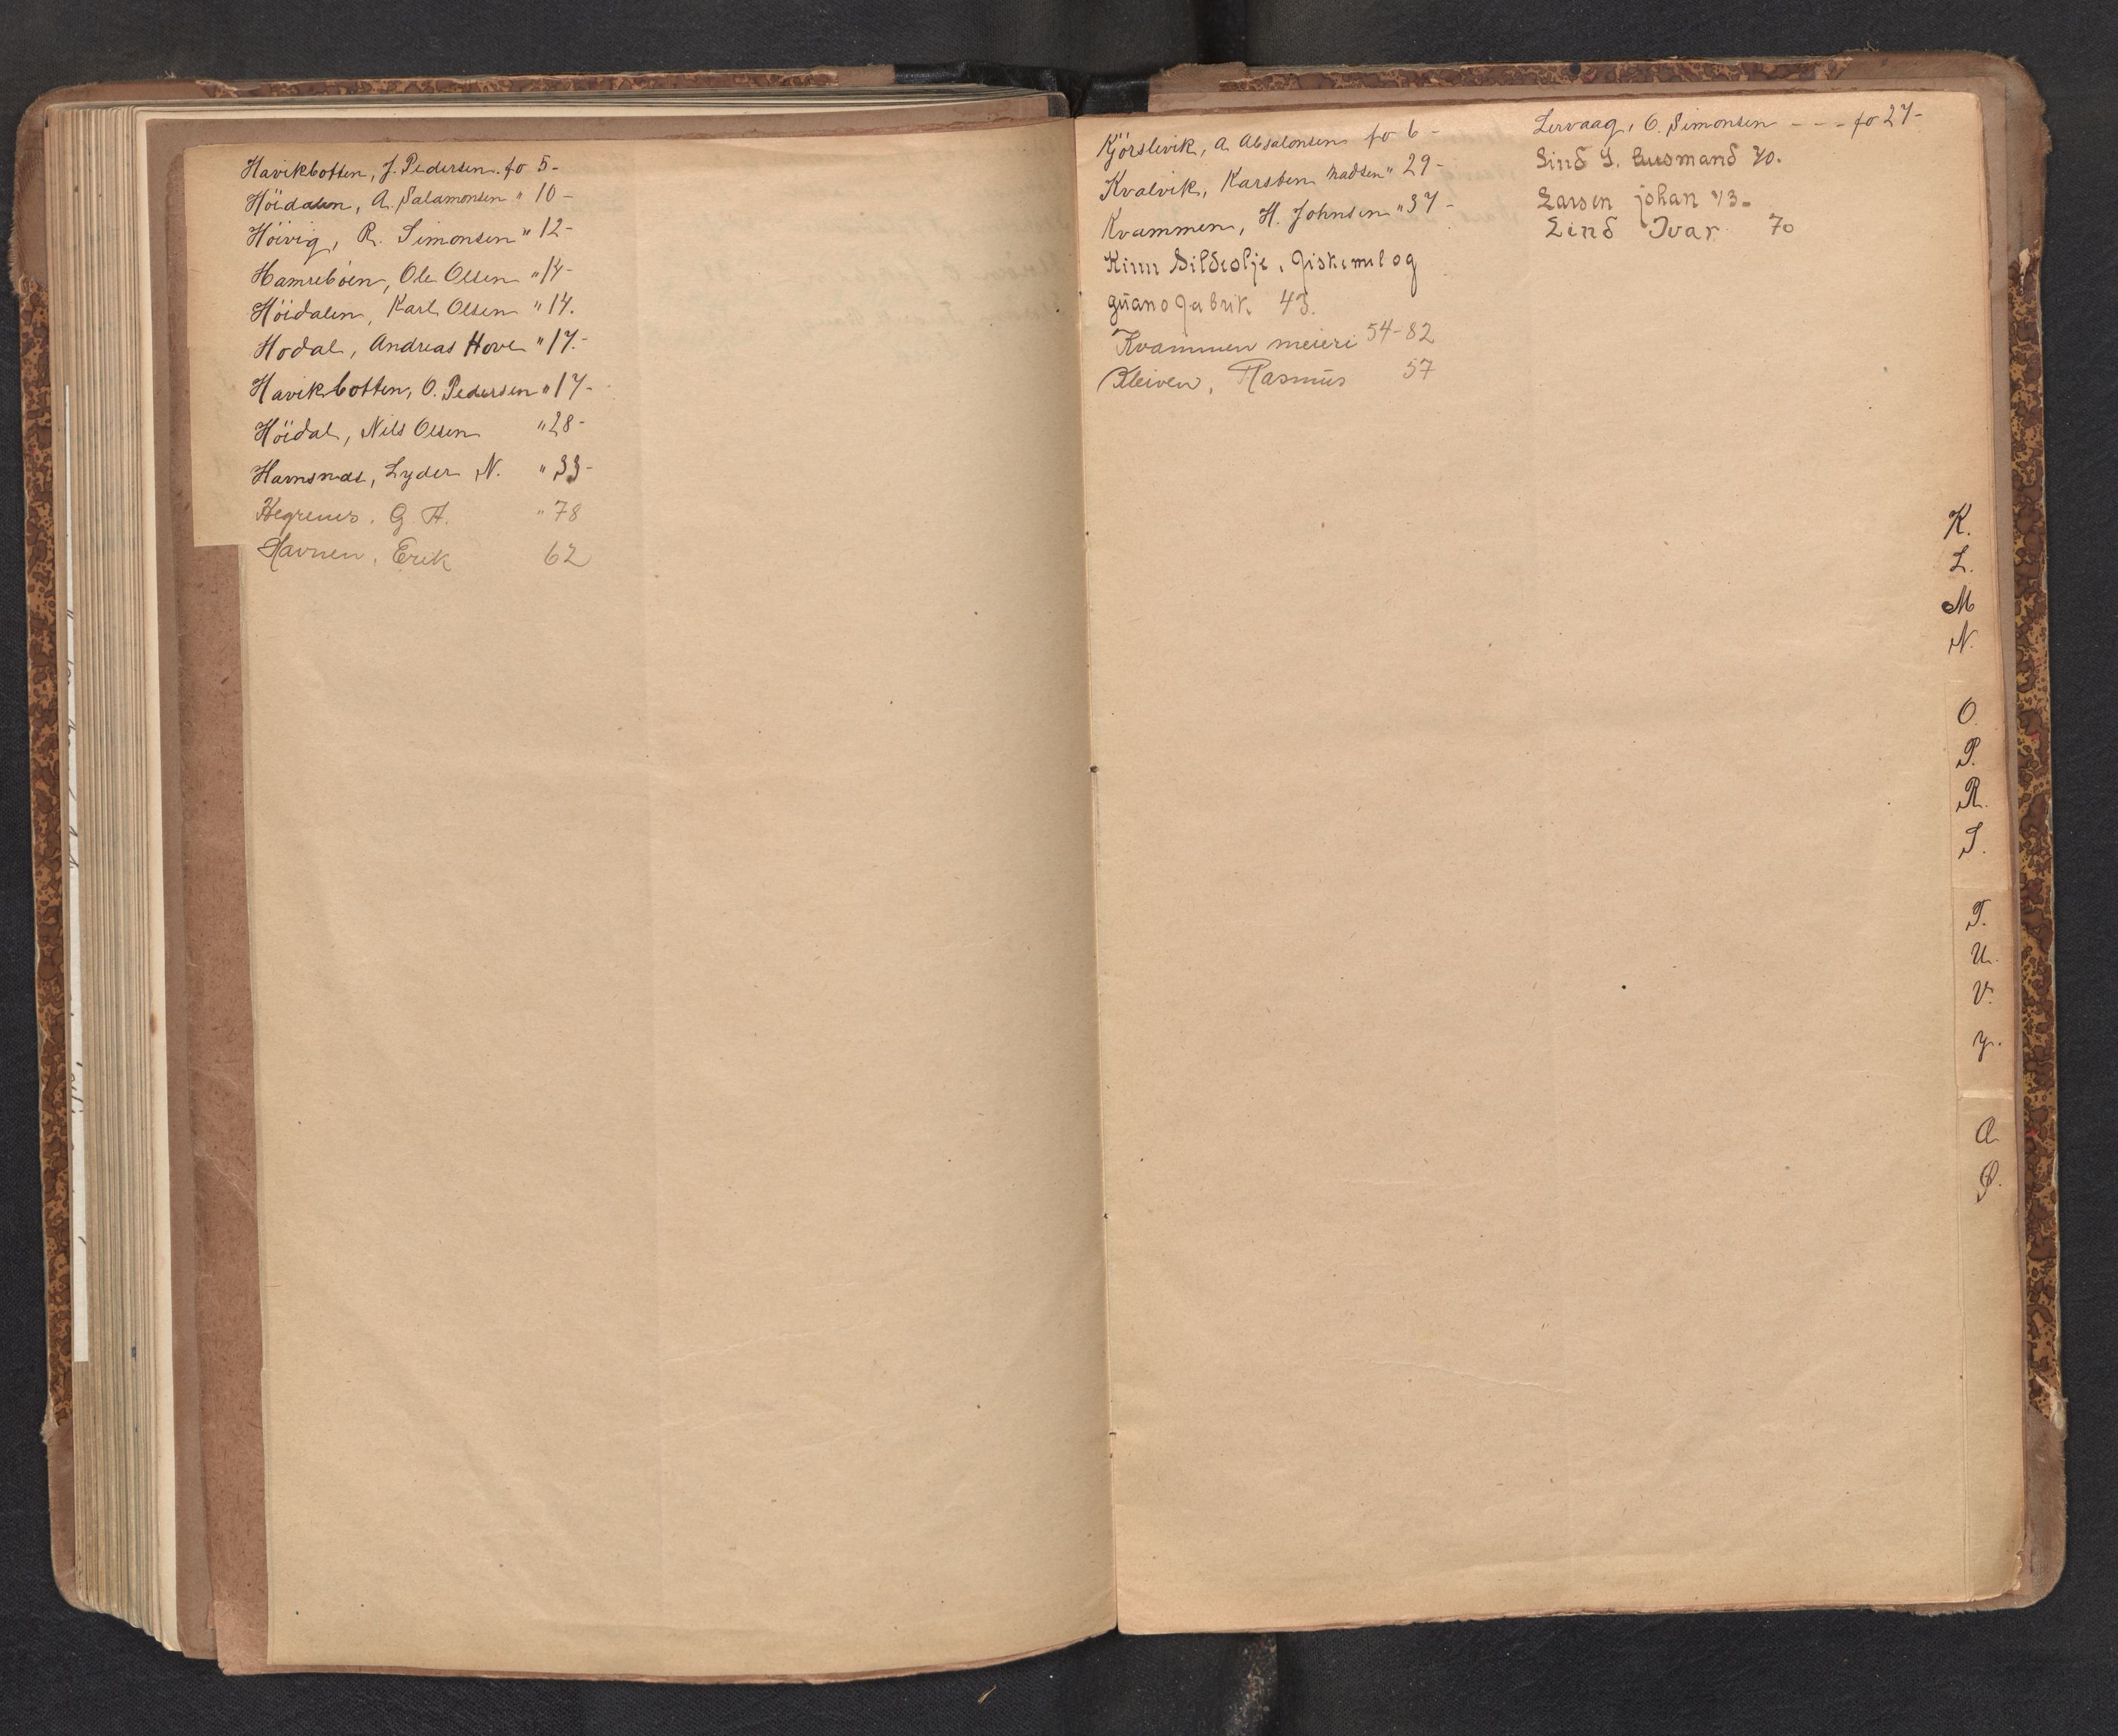 Havikbotten, J. Pedersen. fo 5-
Höidalen, A. Salamonsen " 10-
Höivig, R. Simonsen " 12-
Hamreböen, Ole Olsen " 14-
Höidalen, Karl Olsen " 14.
Hodal, Andreas Hove " 17.-
Havikbotten, O. Pedersen " 17-
Höidal, Nils Olsen " 28-
Havnsnæs, Lyder N. " 33-
Hegrenes. G. H. " 78
Havnen, Erik 62
Kjörslevik, A. Absalonsen fo 6-
Kvalvik, Karsten Madsen " 29-
Kvammen, H. Johnsen " 37-
Kinn Sildeolje, Fiskemel og
guano fabrik 43.
Kvammen meieri 54-82
Kleiven, Rasmus 57
Lervaag, O. Simonsen - - - fo 27-
Lind S. Husmand 40.
Larsen johan 43-
Lind Ivar 70
K.
L.
M
N.
O.
P.
R.
S.
T.
U.
V.
Y.
A
Ø.